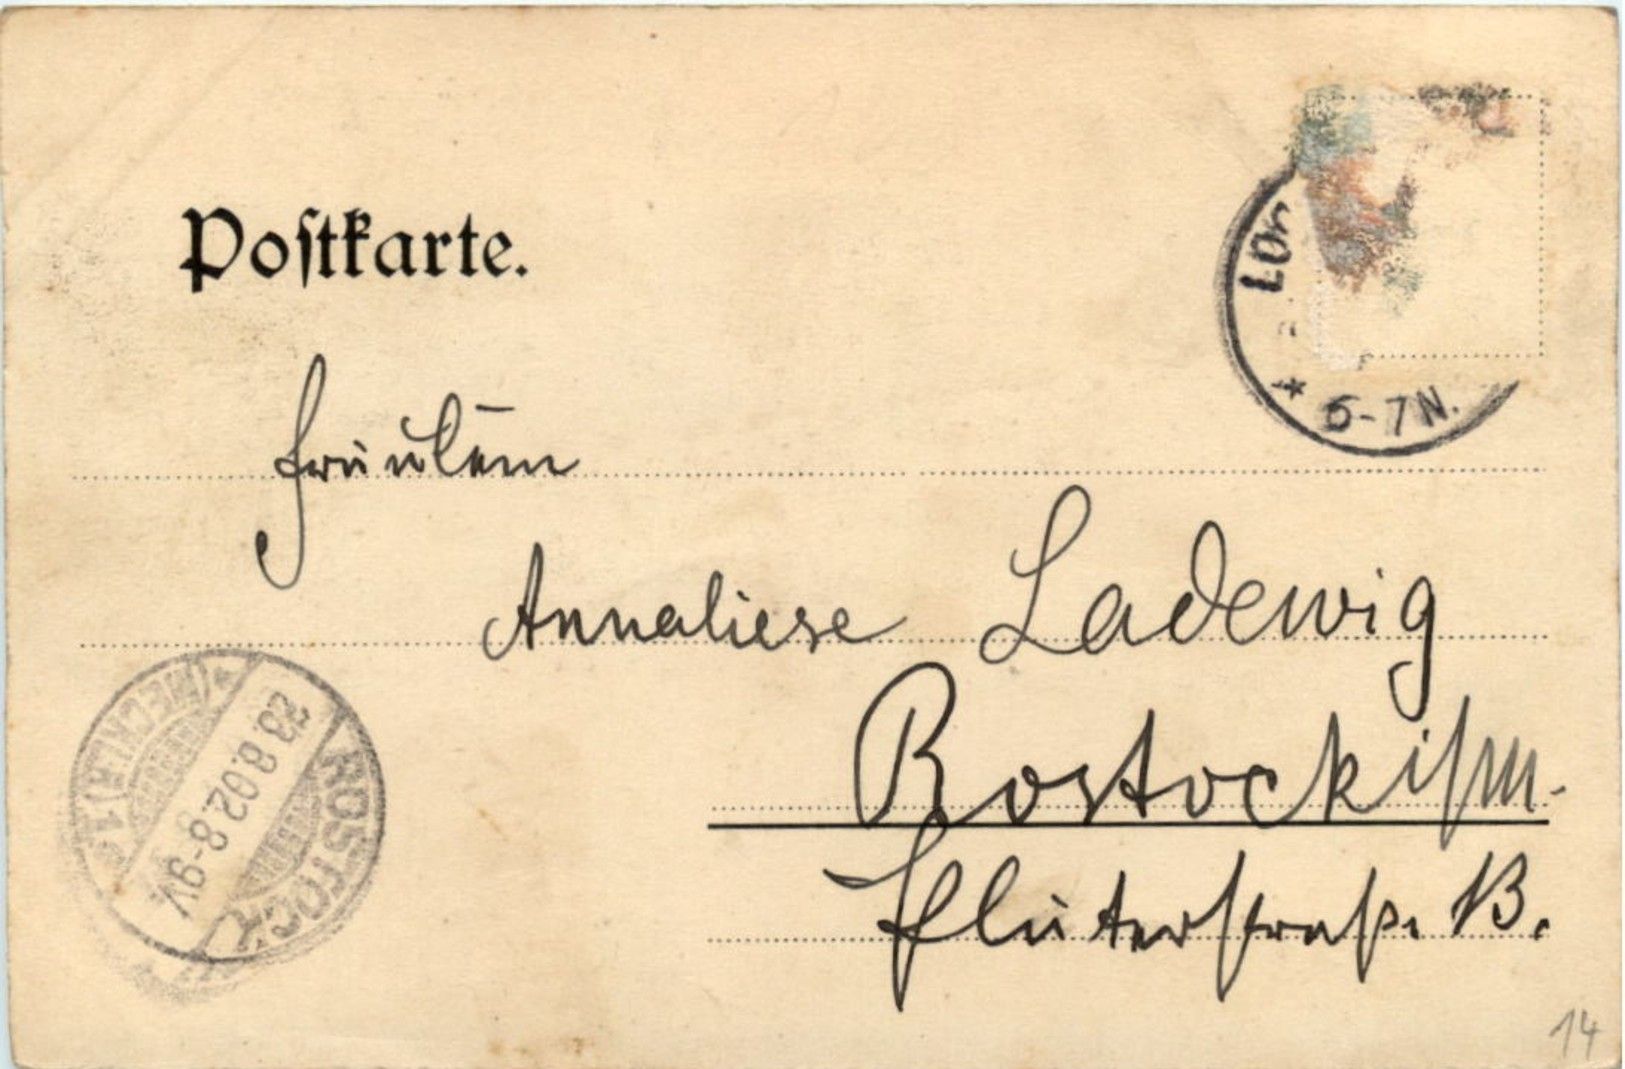 Postkarte.
5-7N.
Fräulein
Annaliese Ladewig
Rostock i/M.
Fluterstraße 13.
ROSTOCK
23.8.02.8-9V.
(MECKLB) 1
14